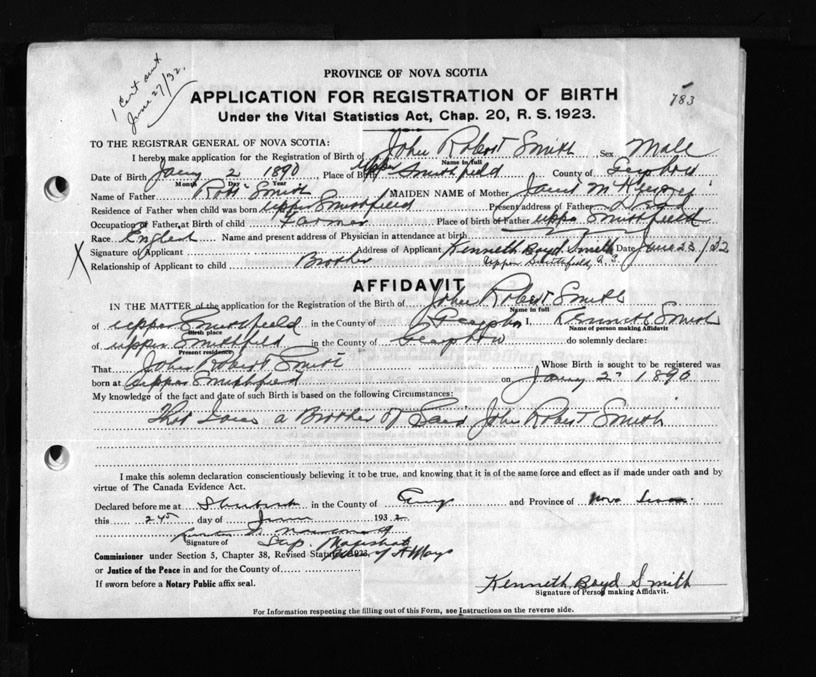 1 Cert sent
June 27/32.
783
PROVINCE OF NOVA SCOTIA
APPLICATION FOR REGISTRATION OF BIRTH
Under the Vital Statistics Act, Chap. 20, R. S. 1923.
TO THE REGISTRAR GENERAL OF NOVA SCOTIA:
I hereby make application for the Registration of Birth of John Robert Smith, Sex Male
Name in full
Date of Birth Jany 2 1890, Place of Birth Upper Smithfield County of
Month Day Year
Name of Father Robt Smith MAIDEN NAME of Mother
Residence of Father when child was born Upper Smithfield Present address of Father
Occupation of Father at Birth of child Farmer Place of birth of Father Upper Smithfield
Race English Name and present address of Physician in attendance at birth
X Signature of Applicant Address of Applicant Kenneth Boyd Smith Date June 23/32
Relationship of Applicant to child Brother Upper Smithfield, N. S.
AFFIDAVIT
IN THE MATTER of the application for the Registration of the Birth of John Robert Smith
Name in full
of Upper Smithfield in the County of I, Kenneth Smith
Birth place Name of person making Affidavit
of Upper Smithfield in the County of do solemnly declare:
Present residence
That John Robert Smith Whose Birth is sought to be registered was
born at Upper Smithfield on Jany 2 1890
My knowledge of the fact and date of such Birth is based on the following Circumstances:
That I am a Brother of Said John Robert Smith
I make this solemn declaration conscientiously believing it to be true, and knowing that it is of the same force and effect as if made under oath and by
virtue of The Canada Evidence Act.
Declared before me at in the County of Guy and Province of Nova Scotia
this 24 day of June 1932
Signature of
Commissioner under Section 5, Chapter 38, Revised Statutes
or Justice of the Peace in and for the County of
If sworn before a Notary Public affix seal.
Kenneth Boyd Smith
Signature of Person making Affidavit.
For Information respecting the filling out of this Form, see Instructions on the reverse side.